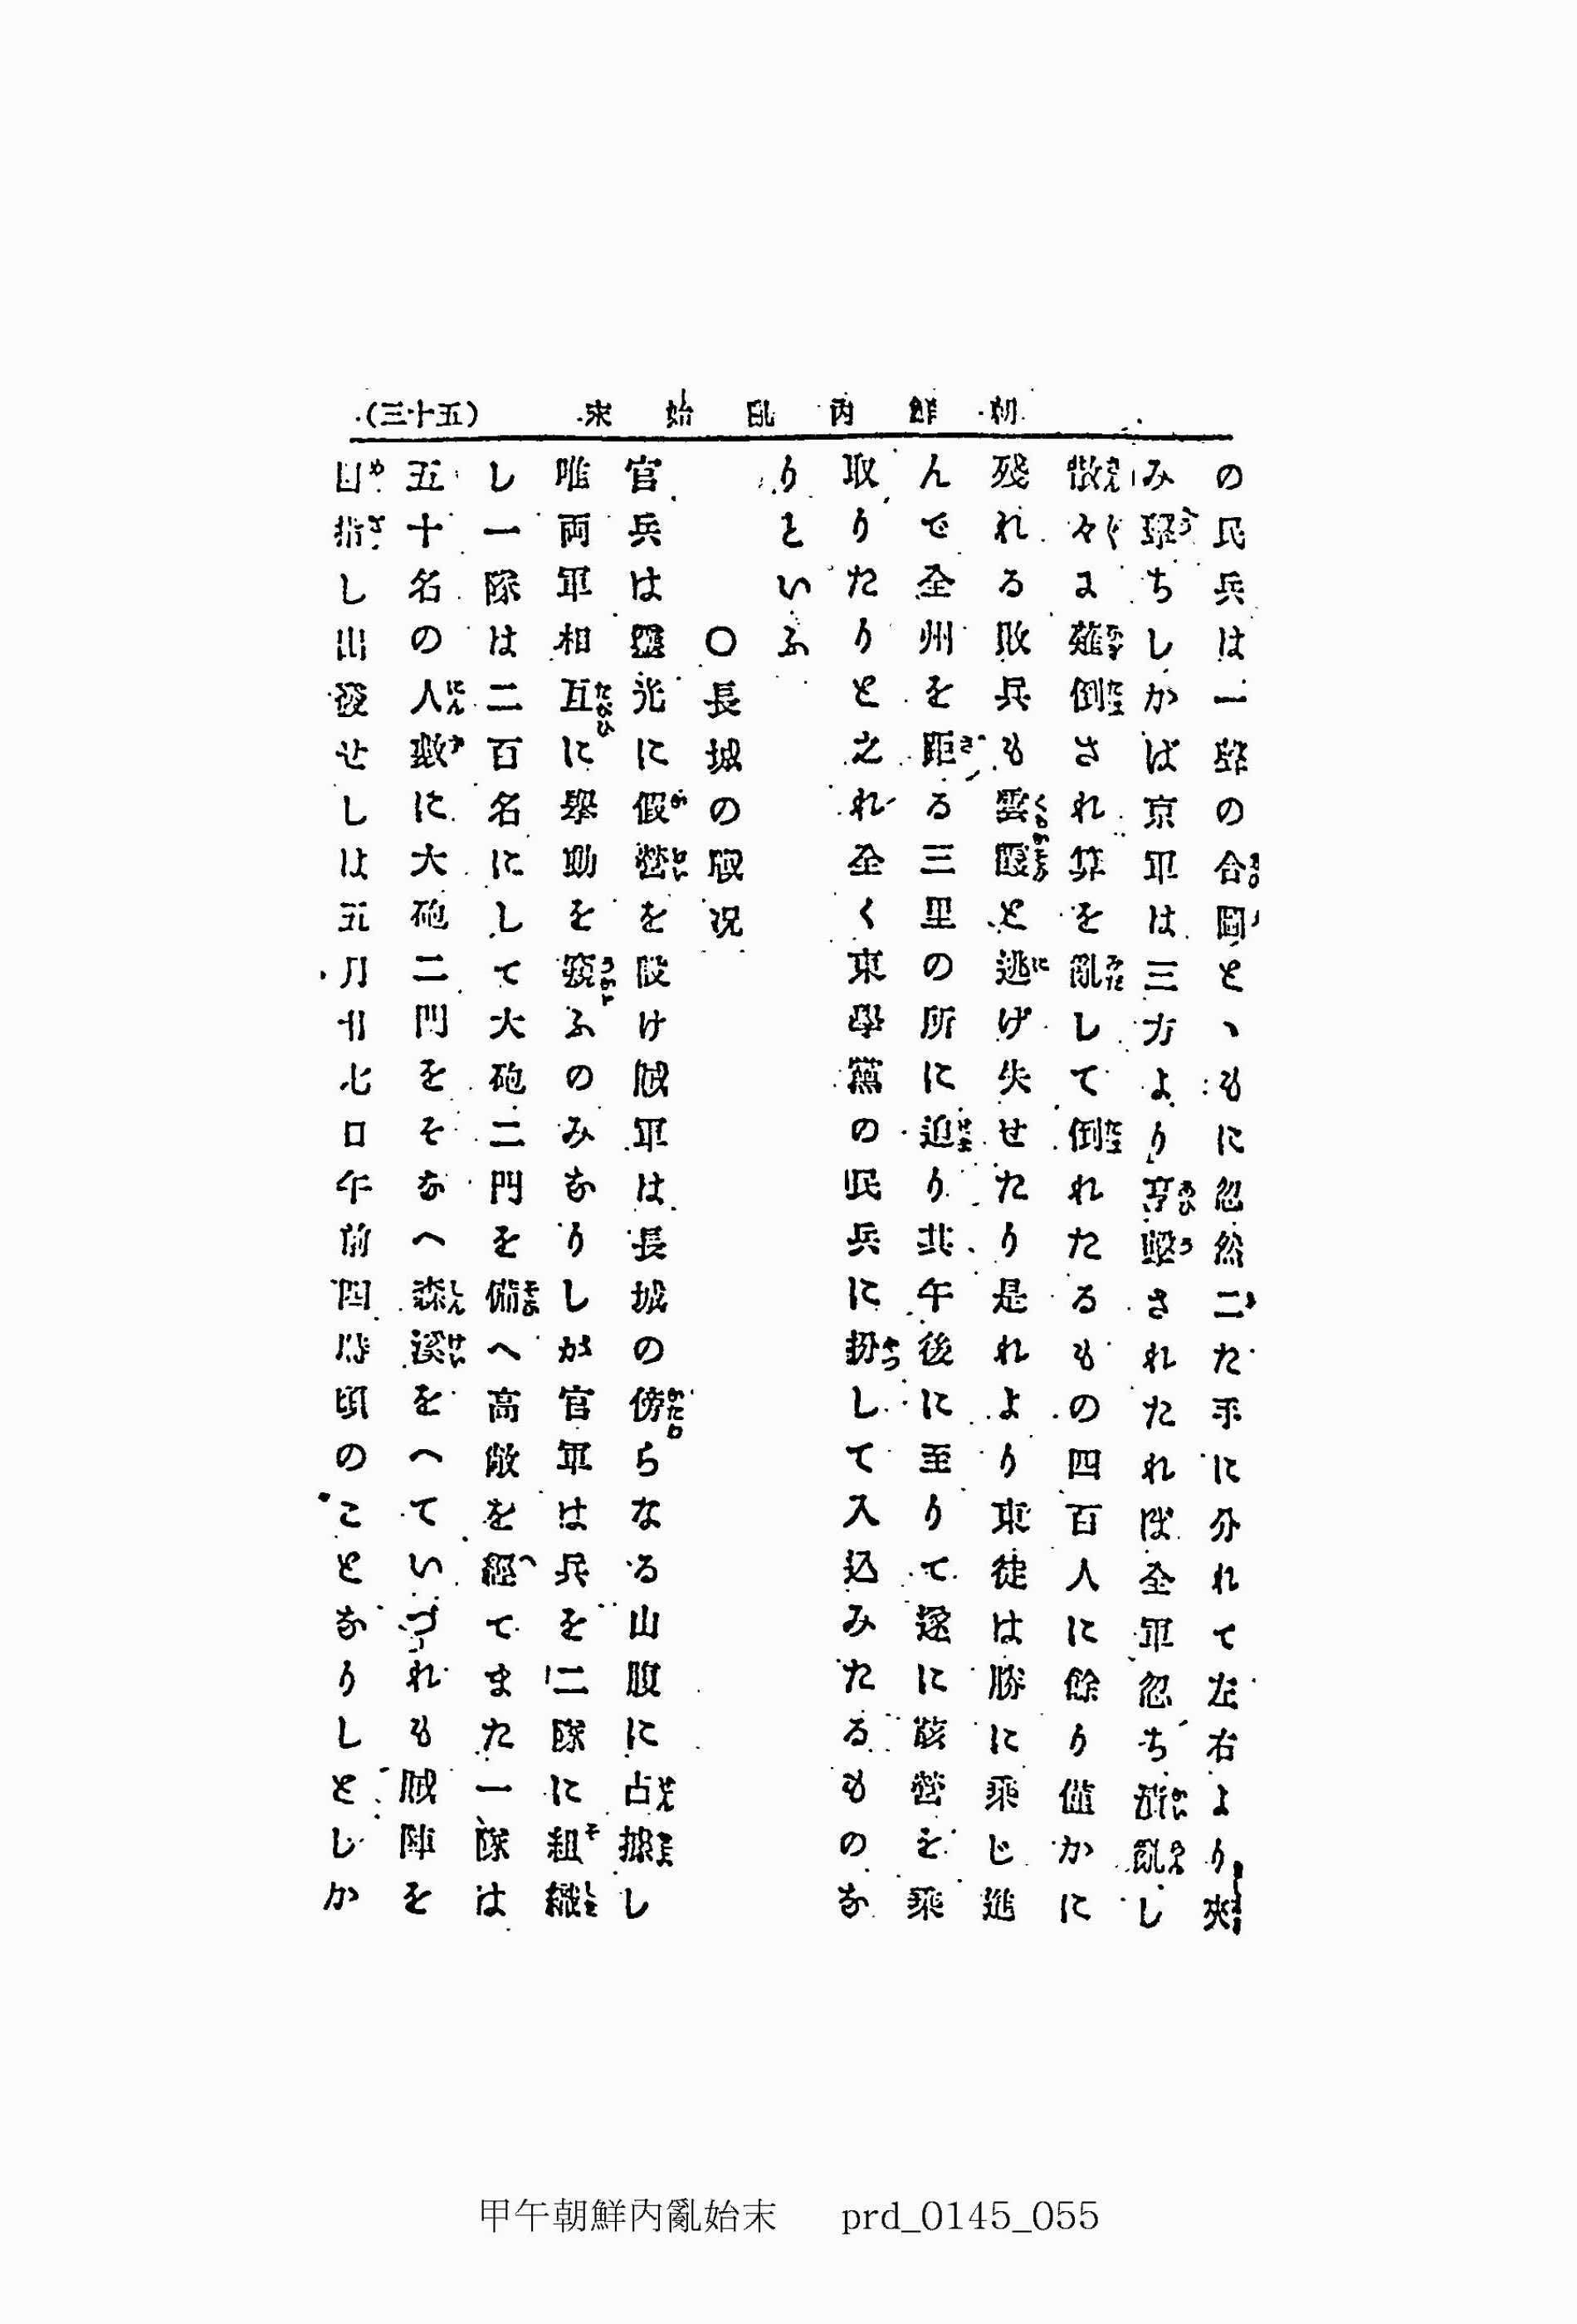 朝鮮內亂始末 (三十五)
の民兵は一聲の合圖とゝもに忽然二た手に分れて左右より夾
み擊ちしかば京軍は三方より享擊されたれば全軍忽ち亂し
散々よ薙倒され算を亂して倒れたるもの四百人に餘り僅かに
殘れる敗兵も雲霞と逃げ失せたり是れより東徒は勝に乘じ進
んで全州を距る三里の所に迫り其午後に至りて遂に該營を乘
取りたりと之れ全く東學黨の民兵に扮して入込みたるものな
りといふ
〇長城の戰况
官兵は靈光に假營を設け賊軍は長城の傍らなる山腹に占據し
唯両軍相互に擧動を窺ふのみなりしが官軍は兵を二隊に組織
し一隊は二百名にして大砲二門を備へ高敞を經てまた一隊は
五十名の人數に大砲二門をそなへ森溪をへていづれも賊陣を
目指し出發せしは五月廿七日午前四時頃のことなりしとしか
甲午朝鮮內亂始末 prd_0145_055